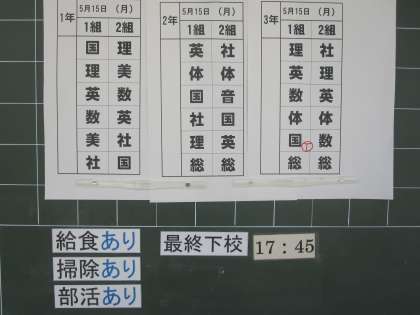 1年 5月15日 (月)
1組 2組
国 理
理 美
英 数
数 英
美 社
社 国
2年 5月15日 (月)
1組 2組
英 社
体 体
国 音
社 国
理 英
総 総
3年 5月15日 (月)
1組 2組
理 社
英 理
数 英
体 体
国 数
総 総
給食あり
掃除あり
部活あり
最終下校 17:45